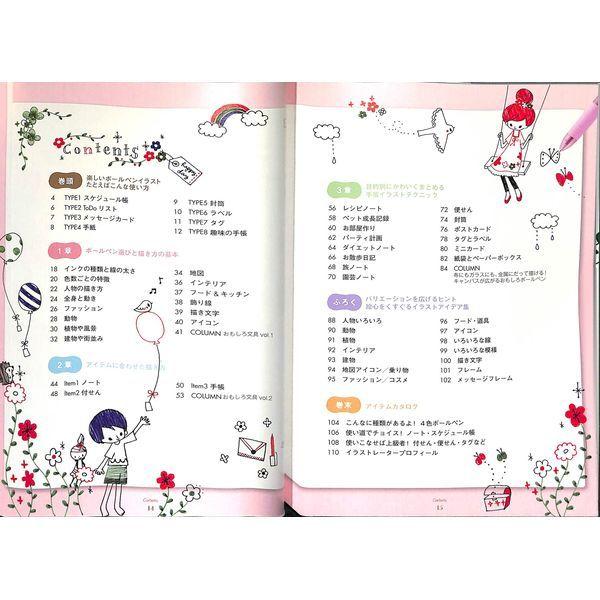 Contents
巻頭
楽しいボールペンイラスト
たとえばこんな使い方
4 TYPE1 スケジュール帳
6 TYPE2 ToDo リスト
7 TYPE3 メッセージカード
8 TYPE4 手紙
9 TYPE5 封筒
10 TYPE6 ラベル
11 TYPE7 タグ
12 TYPE8 趣味の手帳
1章 ボールペン選びと描き方の基本
18 インクの種類と線の太さ
20 色数ごとの特徴
22 人物の描き方
24 全身と動き
26 ファッション
28 動物
30 植物や風景
32 建物や街並み
34 地図
36 インテリア
37 フード & キッチン
38 飾り線
39 描き文字
40 アイコン
41 COLUMN おもしろ文具 vol.1
2章 アイテムに合わせた描き方
44 Item1 ノート
48 Item2 付せん
50 Item3 手帳
53 COLUMN おもしろ文具 vol.2
Contents
14
3章
目的別にかわいくまとめる
手描イラストテクニック
56 レシピノート
58 ペット成長記録
60 お部屋作り
62 パーティ計画
64 ダイエットノート
66 お散歩日記
68 旅ノート
70 園芸ノート
72 便せん
74 封筒
76 ポストカード
78 タグとラベル
80 ミニカード
82 紙袋とペーパーボックス
84 COLUMN
布にもガラスにも、全国にだって描ける!
キャンバスが広がるおもしろボールペン
ふろく
バリエーションを広げるヒント
絵心をくすぐるイラストアイデア集
88 人物いろいろ
90 動物
91 植物
92 インテリア
93 建物
94 地図アイコン/乗り物
95 ファッション/コスメ
96 フード・道具
97 アイコン
98 いろいろな線
99 いろいろな模様
100 描き文字
101 フレーム
102 メッセージフレーム
巻末 アイテムカタログ
104 こんなに種類があるよ! 4色ボールペン
106 使い道でチョイス! ノート・スケジュール帳
108 使いこなせば上級者! 付せん・便せん・タグなど
110 イラストレータープロフィール
Contents
15